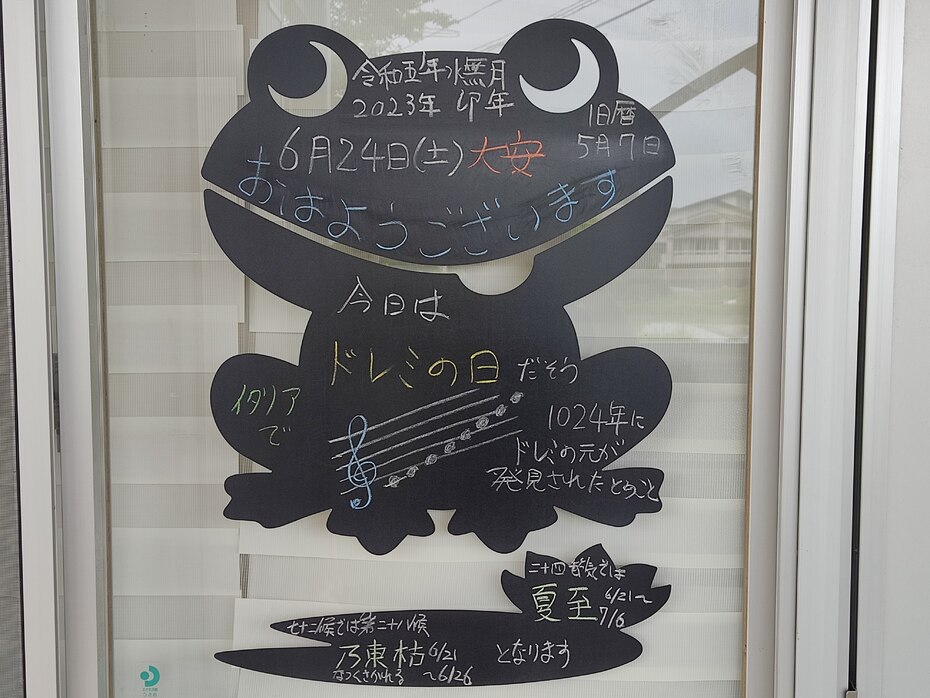 令和五年 水無月
2023年 卯年
旧暦
5月7日
6月24日(土)大安
おはようございます
今日は
ドレミの日だそう
イタリア
で
1024年に
ドレミの元が
発見されたとのこと
二十四節気では
夏至 6/21〜
7/6
七十二候では第二十八候
乃東枯 6/21
なつくさかれる 〜6/26
となります